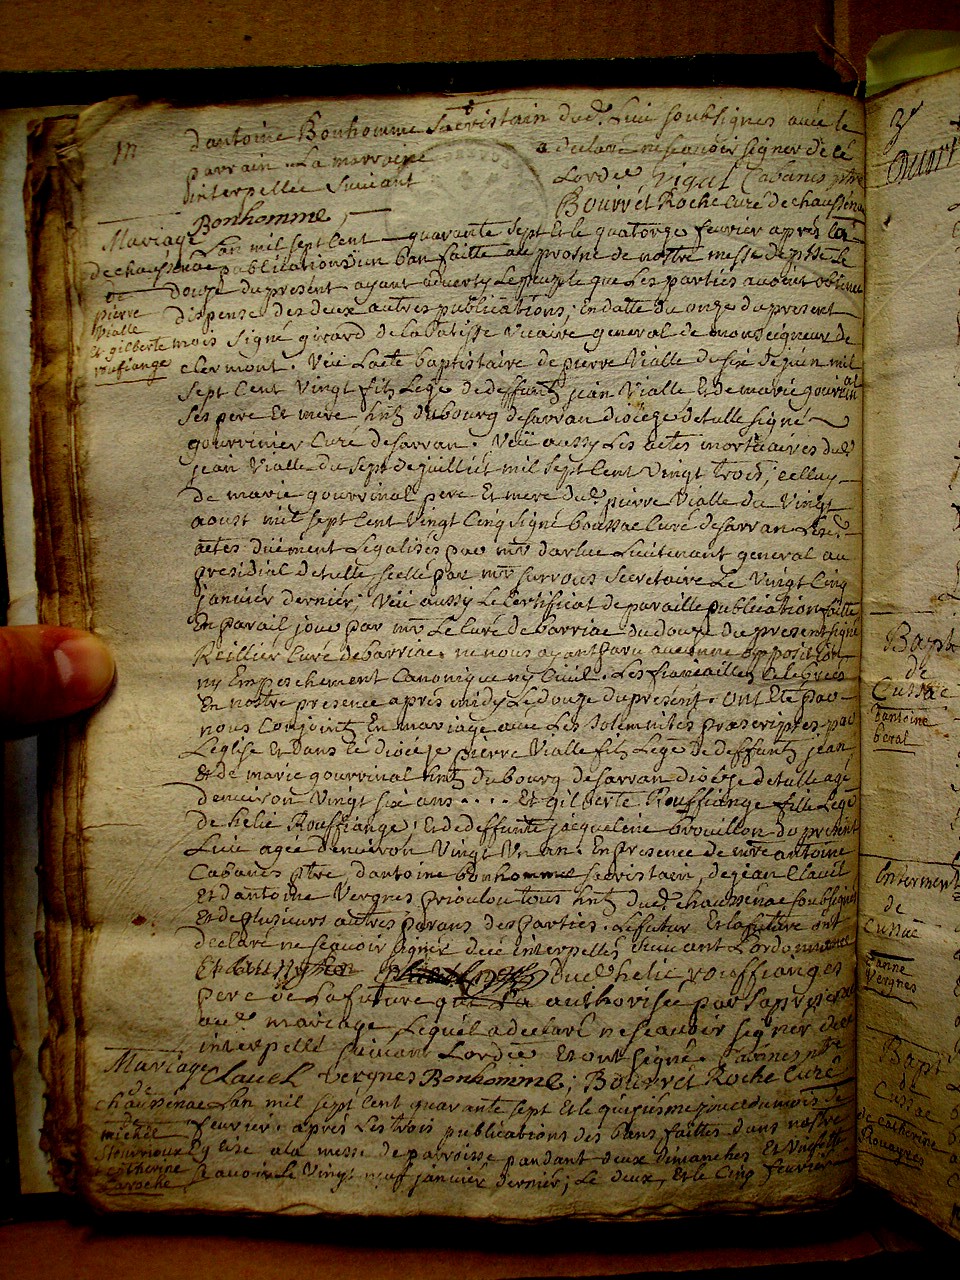 d'antoine Bonhomme Sacristain dud. Lieu soubsignes avec le
parrain La marraine a declare ne scavoir signer de ce
interpellée Suivant Lordce Vigal Cabanes ptre
Bonhomme Bourret Roche Curé de chaussenac
Mariage Lan mil sept Cent quarante Sept Et le quatorze fevrier apres la
de chaussenac publication d'un ban faitte au prosne de nostre messe de psse Le
de douze du present ayant adverty Le peuple que Les parties avoent obtenu
pierre Vialle dispense des deux autres publications, En datte du onze du present
Et gilberte rouffiange mois Signé girard de La batisse Vicaire general de monseigneur de
clermont. Veu Lacte baptistaire de pierre Vialle du six de juin mil
Sept Cent Vingt fils Lege de deffunts jean Vialle Et de marie gourvinal
Ses pere Et mere hnts du bourg de sarran diocèze de tulle signé
gourvinier Curé de sarran. Veu aussy Les actes mortuaires dud.
jean Vialle du sept de juilliet mil sept Cent Vingt trois; celluy
de marie gourvinal pere Et mere dud. pierre Vialle du Vingt
aoust mil sept Cent Vingt Cinq signé boussac Curé de sarran Lesd.
actes duement Legalisés par mr darluc Lieutenant general au
presidial de tulle, scellé par mr surrous secretaire Le Vingt Cinq
janvier dernier; Veu aussy Le Certificat de paraille publication faitte
En parail jour par mr Le Curé de barriac du douze du present signé
Reillier Curé de barriac. ne nous ayant paru aucunne opposition
ny Empeschement Canonique ny Civil. Les fiancailles Celebrees
En nostre presence apres midy Le douze du present. Ont Eté par
nous Conjoints En mariage avec Les solemnites prescriptes par
L'eglise Et dans Ce dioceze pierre Vialle fils Lege de deffunts jean
Et de marie gourvinal hnts du bourg de sarran dioceze de tulle agé
denviron Vingt six ans.... Et gilberte Rouffiange fille Lege
de helie Rouffiange; Et de deffunte jacqueline brouillon du present
Lieu agée denviron Vingt Un an. En presence de mre antoine
Cabanes ptre, d'antoine bonhomme sacristain, de jean Clavel
Et d'antoine Vergnes prioulou tous hnts dud. chaussenac soubsignes
Et de plusieurs autres parans des parties. Le futur Et La future ont
declaré ne scavoir signer de ce interpellés suivant Lordonnance
Et dud. helie rouffianges
pere de La future qui La authorisée par sa presence
aud. mariage Lequel a declaré ne scavoir signer de ce
interpellé suivant Lordce Et ont signé. Cabanes ptre
Clavel Vergnes Bonhomme; Bourret Roche Curé
Mariage de chaussenac Lan mil sept Cent quarante sept Et le quinsieme jour du mois de
michel fevrier: apres Les trois publications des bans faittes dans nostre
Et catherine Laroche Eglise a la messe de parroisse pandant deux dimanches Et Un feste
scavoir Le Vingt neuf janvier dernier; Le deux, Et le Cinq fevrier
Bapt
de
Cussac
d'antoine
beral
Interment
de
Cussac
Vergnes
Bapt
de
Cussac
de Catherine
Rouayres